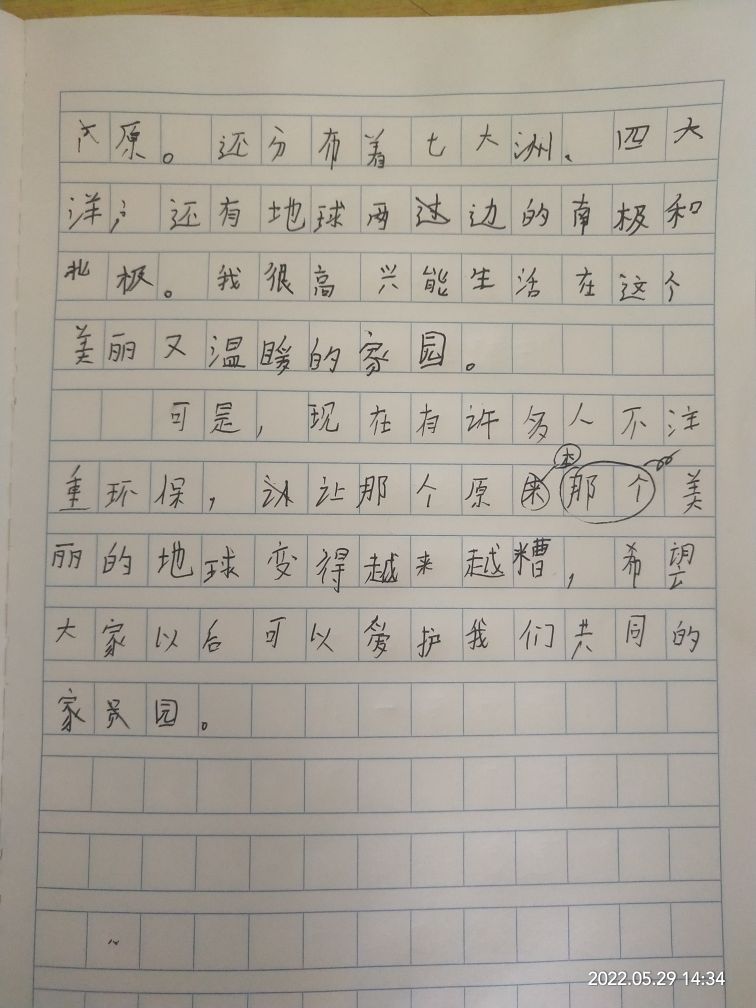 原。还分布着七大洲、四大
洋；还有地球两边的南极和
北极。我很高兴能生活在这个
美丽又温暖的家园。
可是，现在有许多人不注
重环保，让那个原本美
丽的地球变得越来越糟，希望
大家以后可以爱护我们共同的
家园。
2022.05.29 14:34